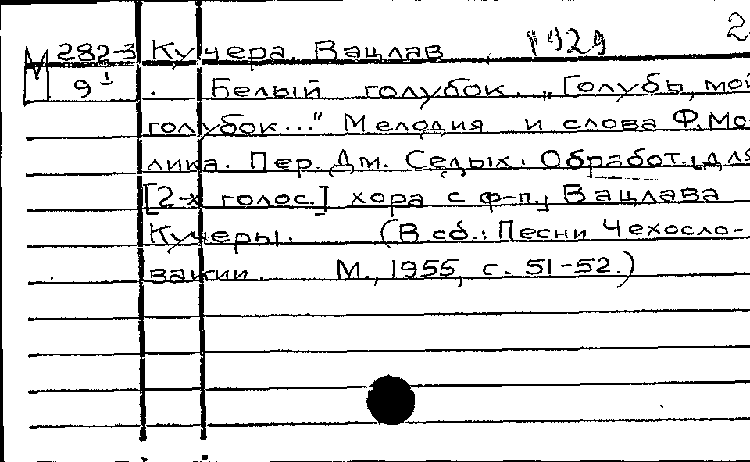 М 282-3 Кучера, Вацлав 1929 2
9¹ . Белый голубок. „Голубь, мой
голубок..." Мелодия и слова Ф. Мо-
лика. Пер. Дм. Седых. Обработ. для
[2-х голос.] хора с ф-п., Вацлава
Кучеры. (В сб.: Песни Чехосло-
вакии. М., 1955, с. 51-52.)